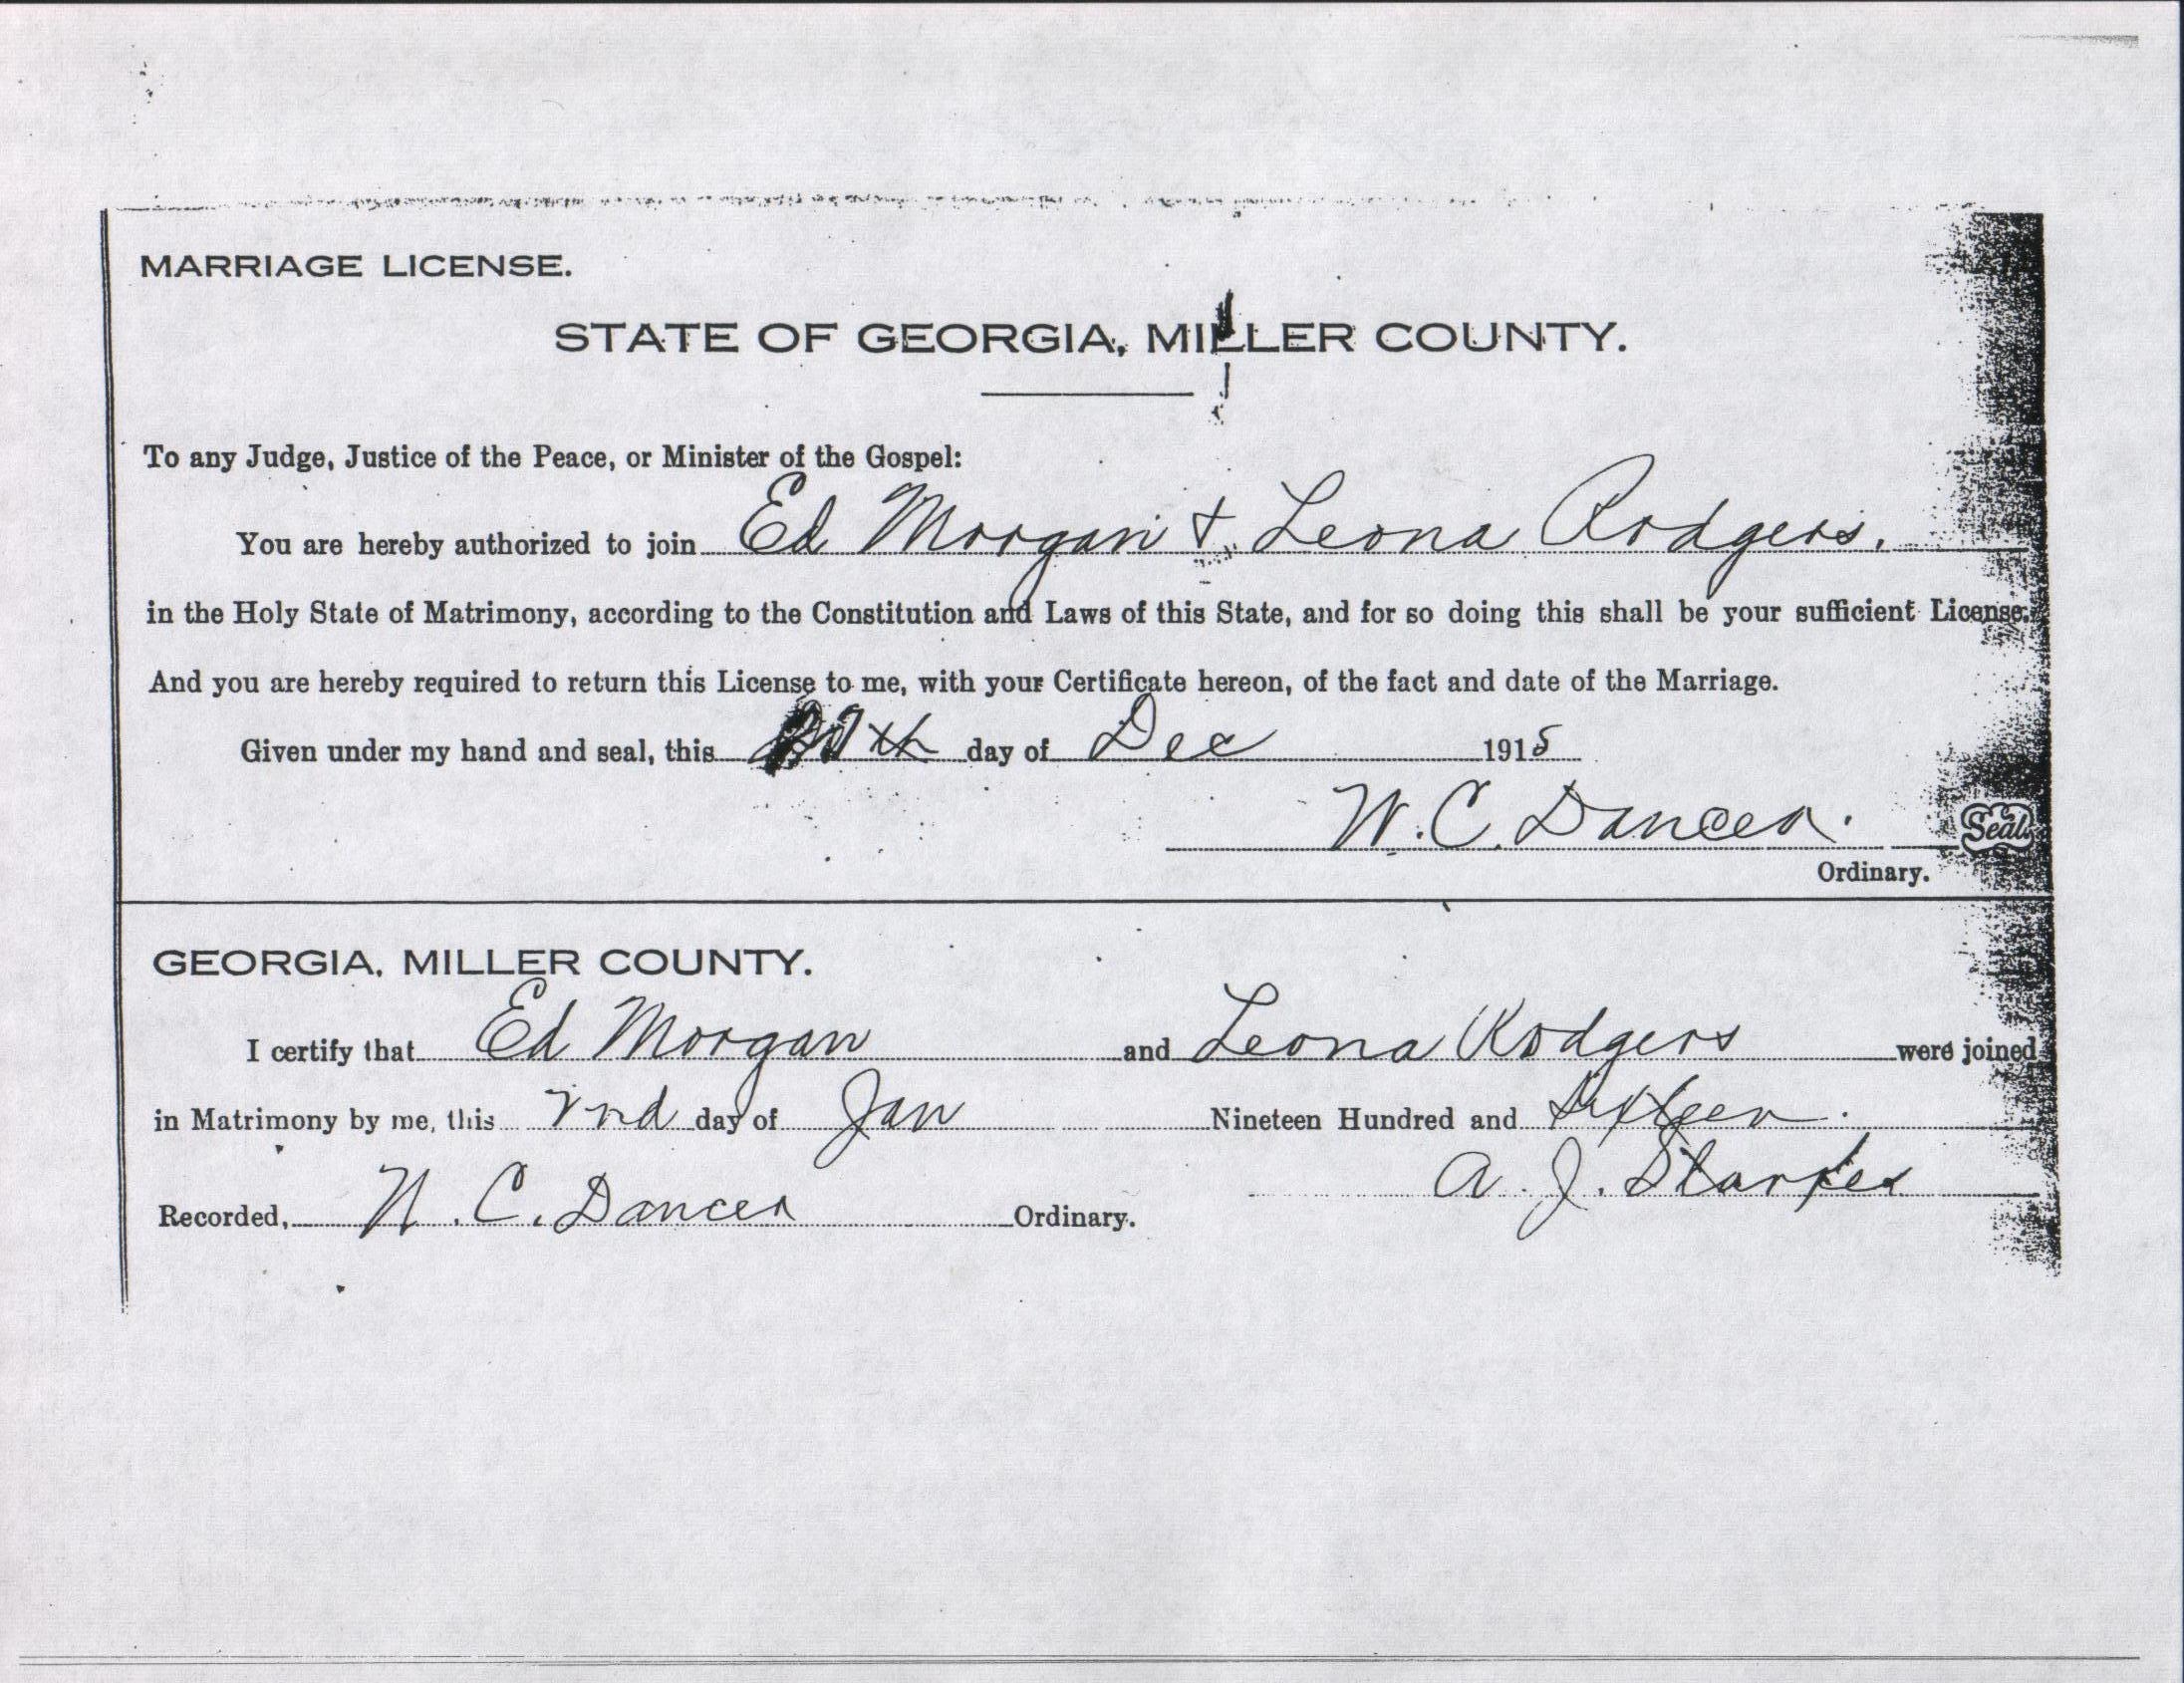 MARRIAGE LICENSE.
STATE OF GEORGIA, MILLER COUNTY.
To any Judge, Justice of the Peace, or Minister of the Gospel:
You are hereby authorized to join Ed Morgan & Leona Rodgers.
in the Holy State of Matrimony, according to the Constitution and Laws of this State, and for so doing this shall be your sufficient License.
And you are hereby required to return this License to me, with your Certificate hereon, of the fact and date of the Marriage.
Given under my hand and seal, this day of Dec 1915
W. C. Dancer. Seal.
Ordinary.
GEORGIA, MILLER COUNTY.
I certify that Ed Morgan and Leona Rodgers were joined
in Matrimony by me, this 2nd day of Jan Nineteen Hundred and
A. J.
Recorded, W. C. Dancer Ordinary.